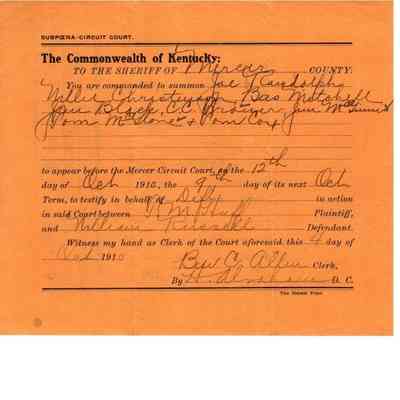 SUBPŒNA-CIRCUIT COURT.
The Commonwealth of Kentucky:
TO THE SHERIFF OF Mercer COUNTY:
You are commanded to summon Joe Randolph
Christeyson, Mitchell
Black, C.C. Jim
Tom & Tom Cox
to appear before the Mercer Circuit Court, on the 12th
day of Oct 1910, the 9th day of its next Oct
Term, to testify in behalf of Deft in action
in said Court between M Huff Plaintiff,
and William Russell Defendant.
Witness my hand as Clerk of the Court aforesaid, this 4 day of
Oct 1910
Ben C. Allin Clerk,
By D. C.